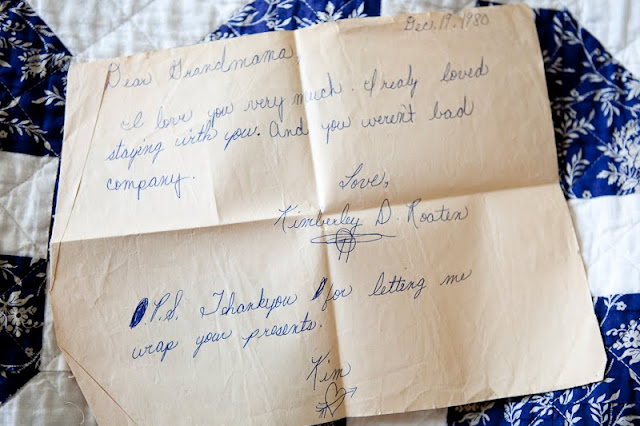 Dec. 19, 1980
Dear Grandmama,
I love you very much. I realy loved
staying with you. And you weren't bad
company.
Love,
Kimberley D. Roaten
P.S. Thankyou for letting me
wrap your presents.
Kim